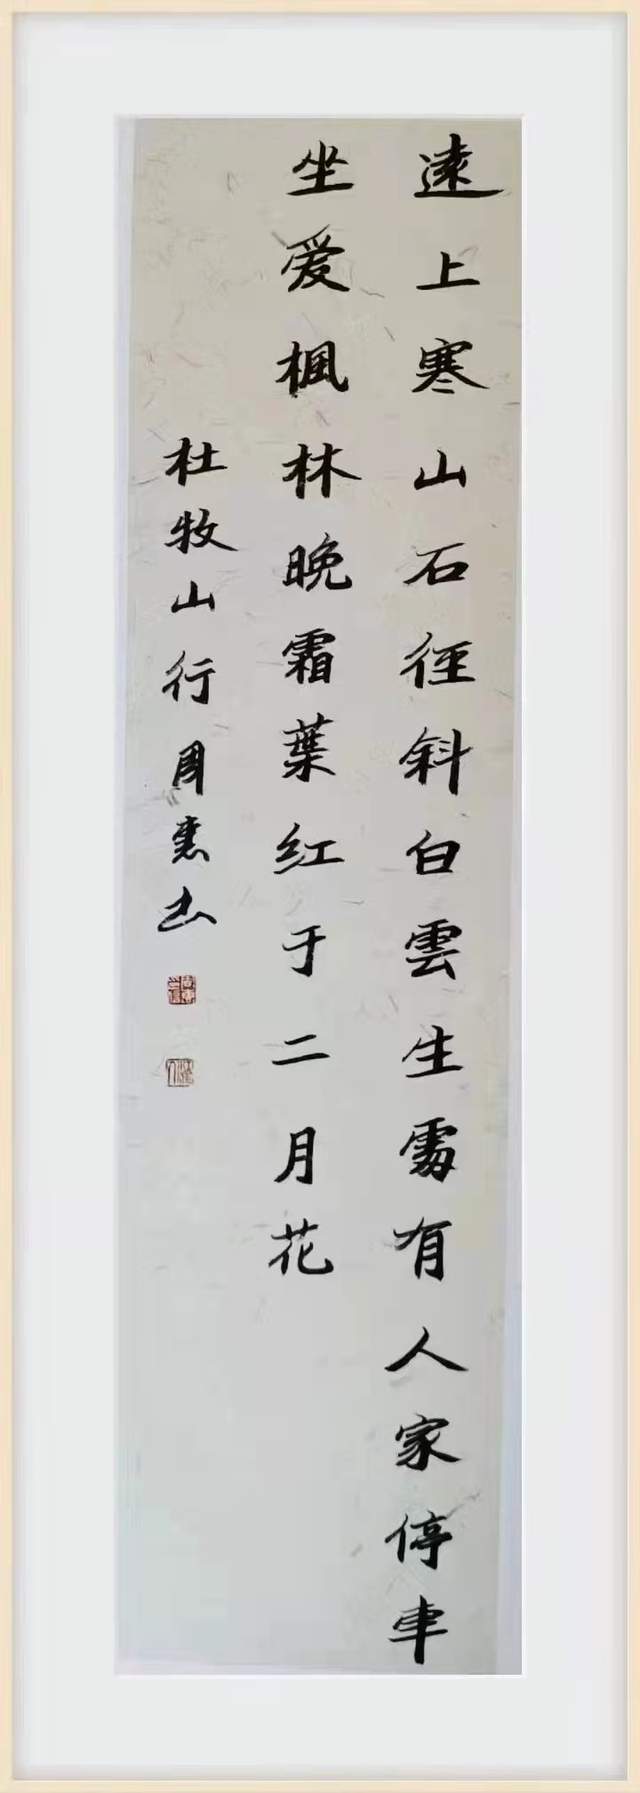 遠上寒山石徑斜白雲生處有人家停車
坐爱楓林晚霜葉红于二月花
杜牧山行周惠书